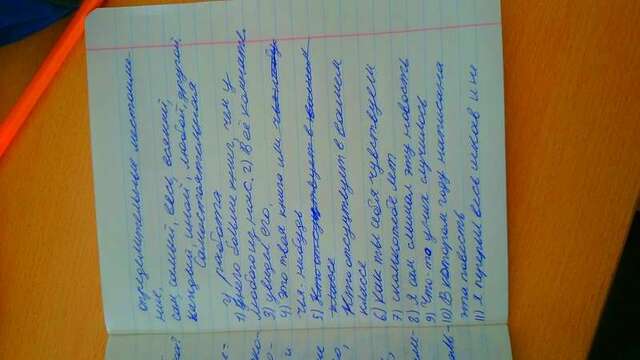 определительные местоиме-
ние.
сам самый, весь, всякий,
каждый, иной, любой, другой
Самостоятельная
работа
1) у него больше книг, чем у
любого из нас. 2) В её комнате.
3) увидел его.
4) Это твоя книга или
чья-нибудь
5) Кто отсутствует в
классе
Кто отсутствует в вашем
классе
6) Как ты себя чувствуешь
7) сколько тебе лет
8) я сам слышал эту новость
9) Что-то у них случилось
10) В котором году написана
эта повесть
11) я перерыл весь шкаф и не